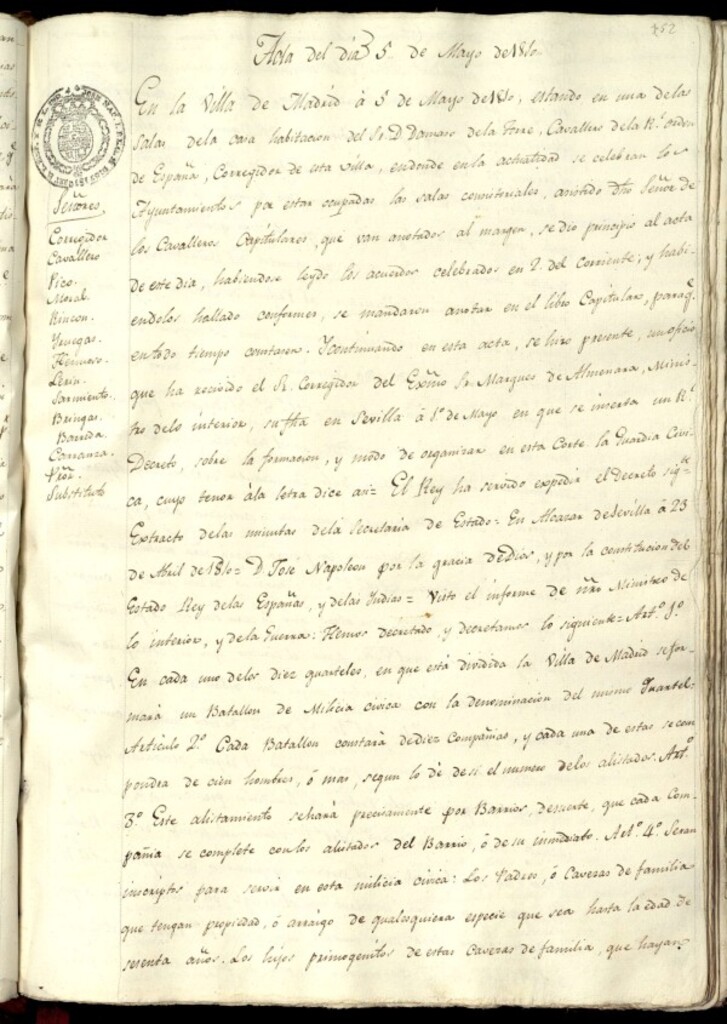 152
Acta del día 5 de Mayo de 1810
En la Villa de Madrid á 5 de Mayo de 1810, estando en una delas
salas dela casa habitacion del Sr. D. Damaso dela Torre, Cavallero dela Rl. orden
de España, Corregidor de esta villa, endonde en la actualidad se celebran los
Ayuntamientos por estar ocupadas las salas consistoriales, asistido dho Señor de
los Cavalleros Capitulares, que van anotados al margen, se dio principio al acta
de este dia, habiendose leydo los acuerdos celebrados en 2 del corriente; y habi-
endolos hallado conformes, se mandaron anotar en el libro Capitular, paraq.e
entodo tiempo constasen. Ycontinuando en esta acta, se hizo presente, un oficio
que ha recivido el Sr. Corregidor del Exmo Sr. Marques de Almenara, Minis-
tro delo interior, su fha en Sevilla á 1º de Mayo, en que se inserta un Rl.
Decreto, sobre la formacion, y modo de organizar en esta Corte la Guardia Civi-
ca, cuyo tenor ála letra dice asi= El Rey ha servido expedir el Decreto sigte.
Extracto delas minutas dela Secretaria de Estado= En Alcazar deSevilla á 23
de Abril de 1810= D. José Napoleon por la gracia deDios, y por la constitucion del
Estado Rey delas Españas, y delas Yndias= Visto el informe de ñro Ministro de
lo interior, y dela Guerra: Hemos decretado, y decretamos lo siguiente= Artº. 1º
En cada uno delos diez quarteles, en que está dividida la Villa de Madrid sefor-
mará un Batallon de Milicia civica con la denominacion del mismo Quartel=
Articulo 2º Cada Batallon constará dediez Compañias, y cada una de estas secom
pondra de cien hombres, ó mas, segun lo dé desi el numero delos alistados. Artº
3º Este alistamiento sehará precisamente por Barrios, desuerte, que cada Com-
pañia se complete conlos alistados del Barrio, ó desu inmediato. Artº 4º Seran
inscriptos para servir en esta milicia civica: Los Padres, ó Caveras de familia
que tengan propiedad, ó arraigo de qualesquiera especie que sea hasta la edad de
sesenta años. Los hijos primogenitos de estas Caveras de familia, que hayan
Señores
Corregidor
Cavallero
Pico.
Moral.
Rincon.
Yenegas.
Hermoso.
Lerin.
Sarmiento.
Bringas.
Barrida
Carranza.
Substituto